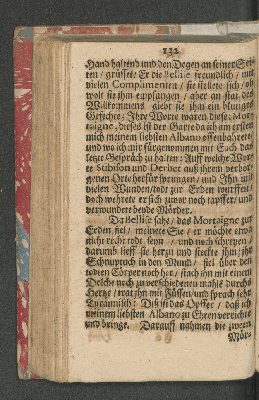 132
Hand haltend und den Degen an seiner Sei-
ten / grüsset Er die Bellise freundlich / mit
vielen Complimenten / sie stellete sich / ob
wolt sie ihn empfangen / aber an stat des
Willkommens giebt sie ihm ein blutiges
Gesichte: Ihre Worte waren diese: Mor-
taigne, dieses ist der Garte da ich am ersten
mich meinem liebsten Albano offenbahret /
und wo ich mir fürgenommen mit Euch das
letzte Gespräch zu halten: Auff welche Wor-
te Stubison und Derbet auß ihrem verbor-
genen Orte herfür sprungen / und Ihn mit
vielen Wunden / todt zur Erden
doch wehrete er sich zuvor noch tapffer / und
verwundete beyde Mörder.
Da Bellise sahe / das Mortaigne zur
Erden fiel / meinete Sie / er möchte etwa
nicht recht todt seyn / und noch schreyen /
darumb lieff sie herzu und steckte ihm ihr
Schnuptuch in den Mund / fiel über den
todten Cörper noch her / stach ihn mit einem
Dolche noch zu verschiedenen mahle durchs
Hertze / trat ihn mit Füssen / und sprach sehr
Tyrannisch: Diß ist das Opffer / daß ich
meinem liebsten Albano zu Ehren verrichte
und bringe. Darauff nahmen die zween
Mör-